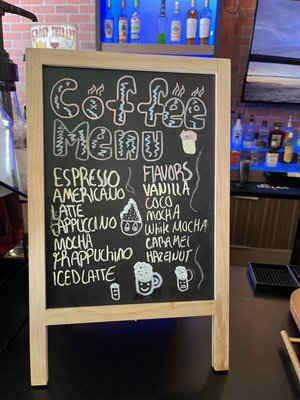 Coffee
Menu
ESPRESSO
AMERICANO
LATTE
CAPPUCCINO
MOCHA
FRAPPUCHINO
ICED LATTE
FLAVORS
VANILLA
COCO
MOCHA
WHITE MOCHA
CARAMEL
HAZELNUT